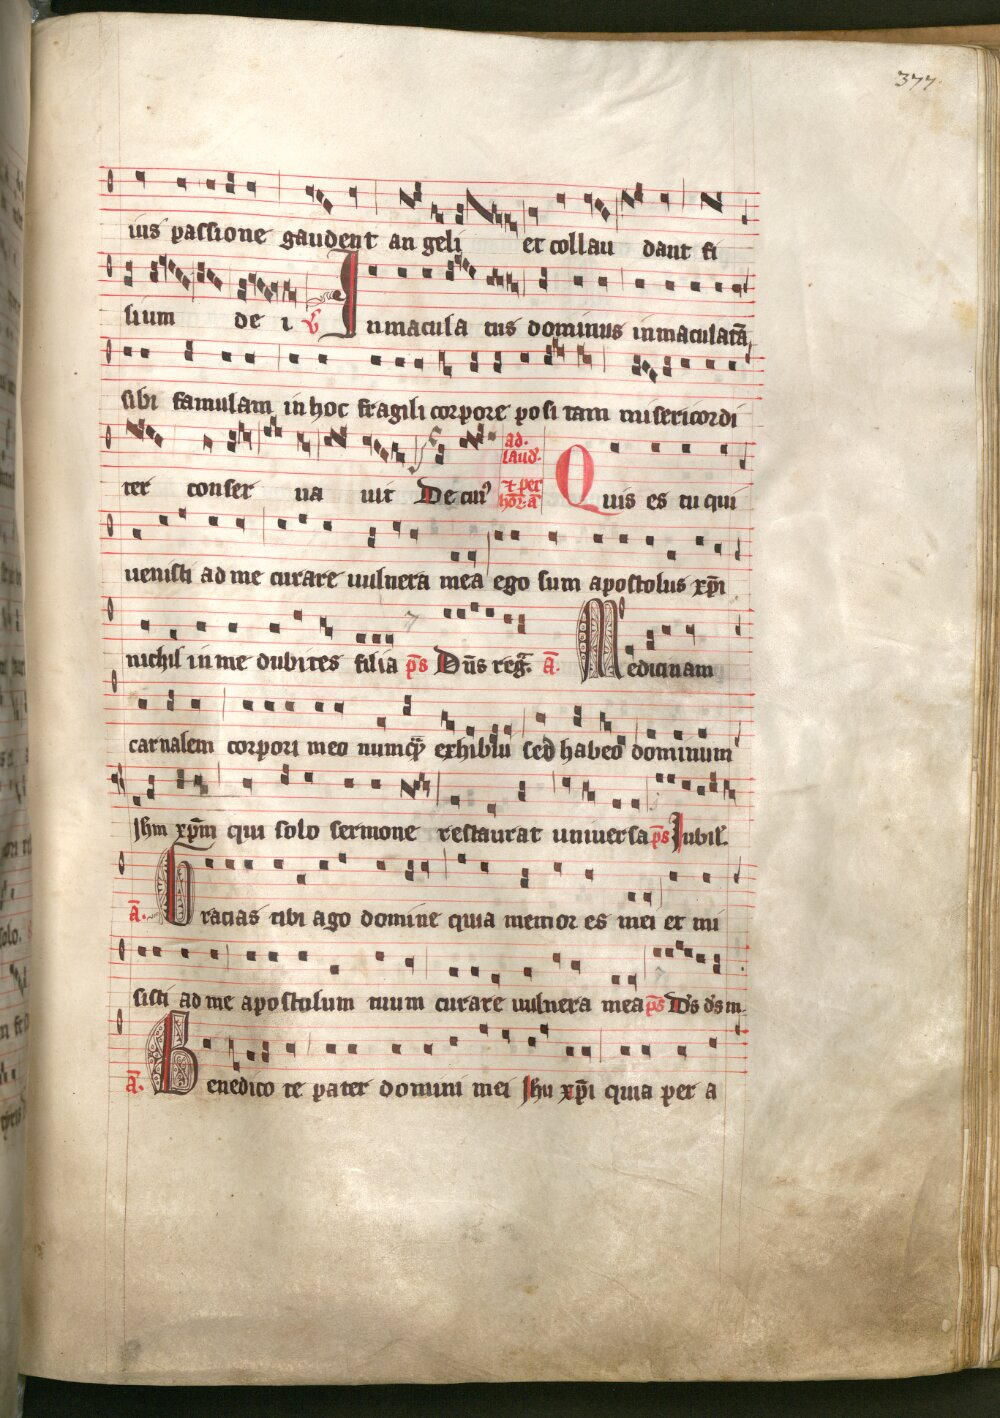 377
ius passione gaudent an geli et collau dant fi
lium de i v̄ Inmacula tus dominus inmaculatā
sibi famulam in hoc fragili corpore po si tam misericordi
ter conser ua uit De cuiꝰ ad. laud. ⁊ per hor. a Quis es tu qui
uenisti ad me curare uulnera mea ego sum apostolus xp̄i
nichil in me dubites filia p̄s Dn̄s reḡ. ā. Medicinam
carnalem corpori meo numqꝫ exhibui sed habeo dominum
Ihm xp̄m qui solo sermone restaurat uniuersa p̄s Iubil.
ā. Gracias tibi ago domine quia memor es mei et mi
sisti ad me apostolum tuum curare uulnera mea p̄s Ds ds m.
ā. Benedico te pater domini mei Ihu xp̄i quia per a